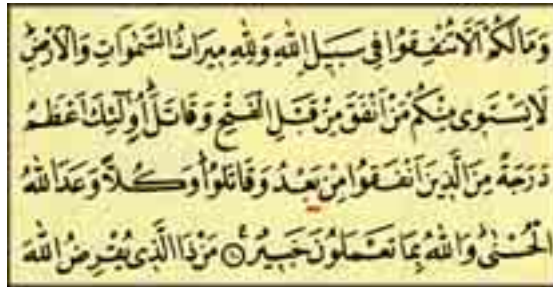 وَمَا لَكُمْ اَلَّا تُنْفِقُوا فِى سَبِيلِ اللّٰهِ وَلِلّٰهِ مِيرَاثُ السَّمٰوَاتِ وَالْاَرْضِ
لَا يَسْتَوِى مِنْكُمْ مَنْ اَنْفَقَ مِنْ قَبْلِ الْفَتْحِ وَقَاتَلَ اُولٰئِكَ اَعْظَمُ
دَرَجَةً مِنَ الَّذِينَ اَنْفَقُوا مِنْ بَعْدُ وَقَاتَلُوا وَكُلًّا وَعَدَ اللّٰهُ
الْحُسْنٰى وَاللّٰهُ بِمَا تَعْمَلُونَ خَبِيرٌ ۝١٠ مَنْ ذَا الَّذِى يُقْرِضُ اللّٰهَ